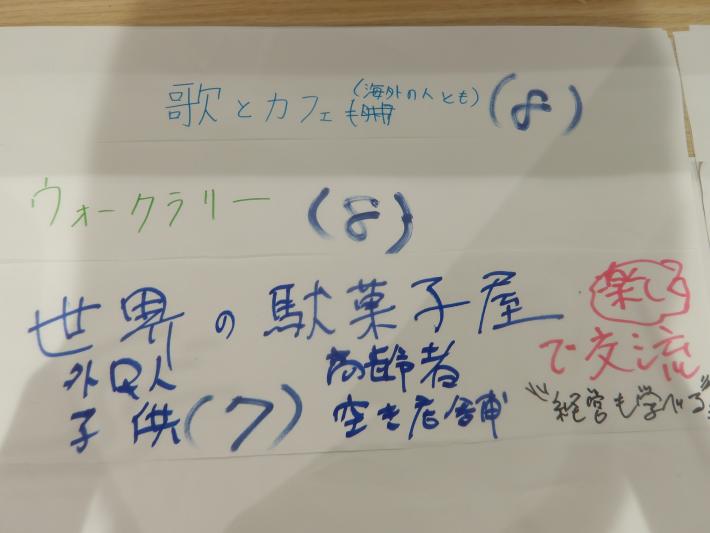 歌とカフェ (海外の人とも) (8)
ウォークラリー (8)
世界の駄菓子屋 楽しく
で交流
外国人 高齢者
子供 (7) 空き店舗 "経営も学べる"